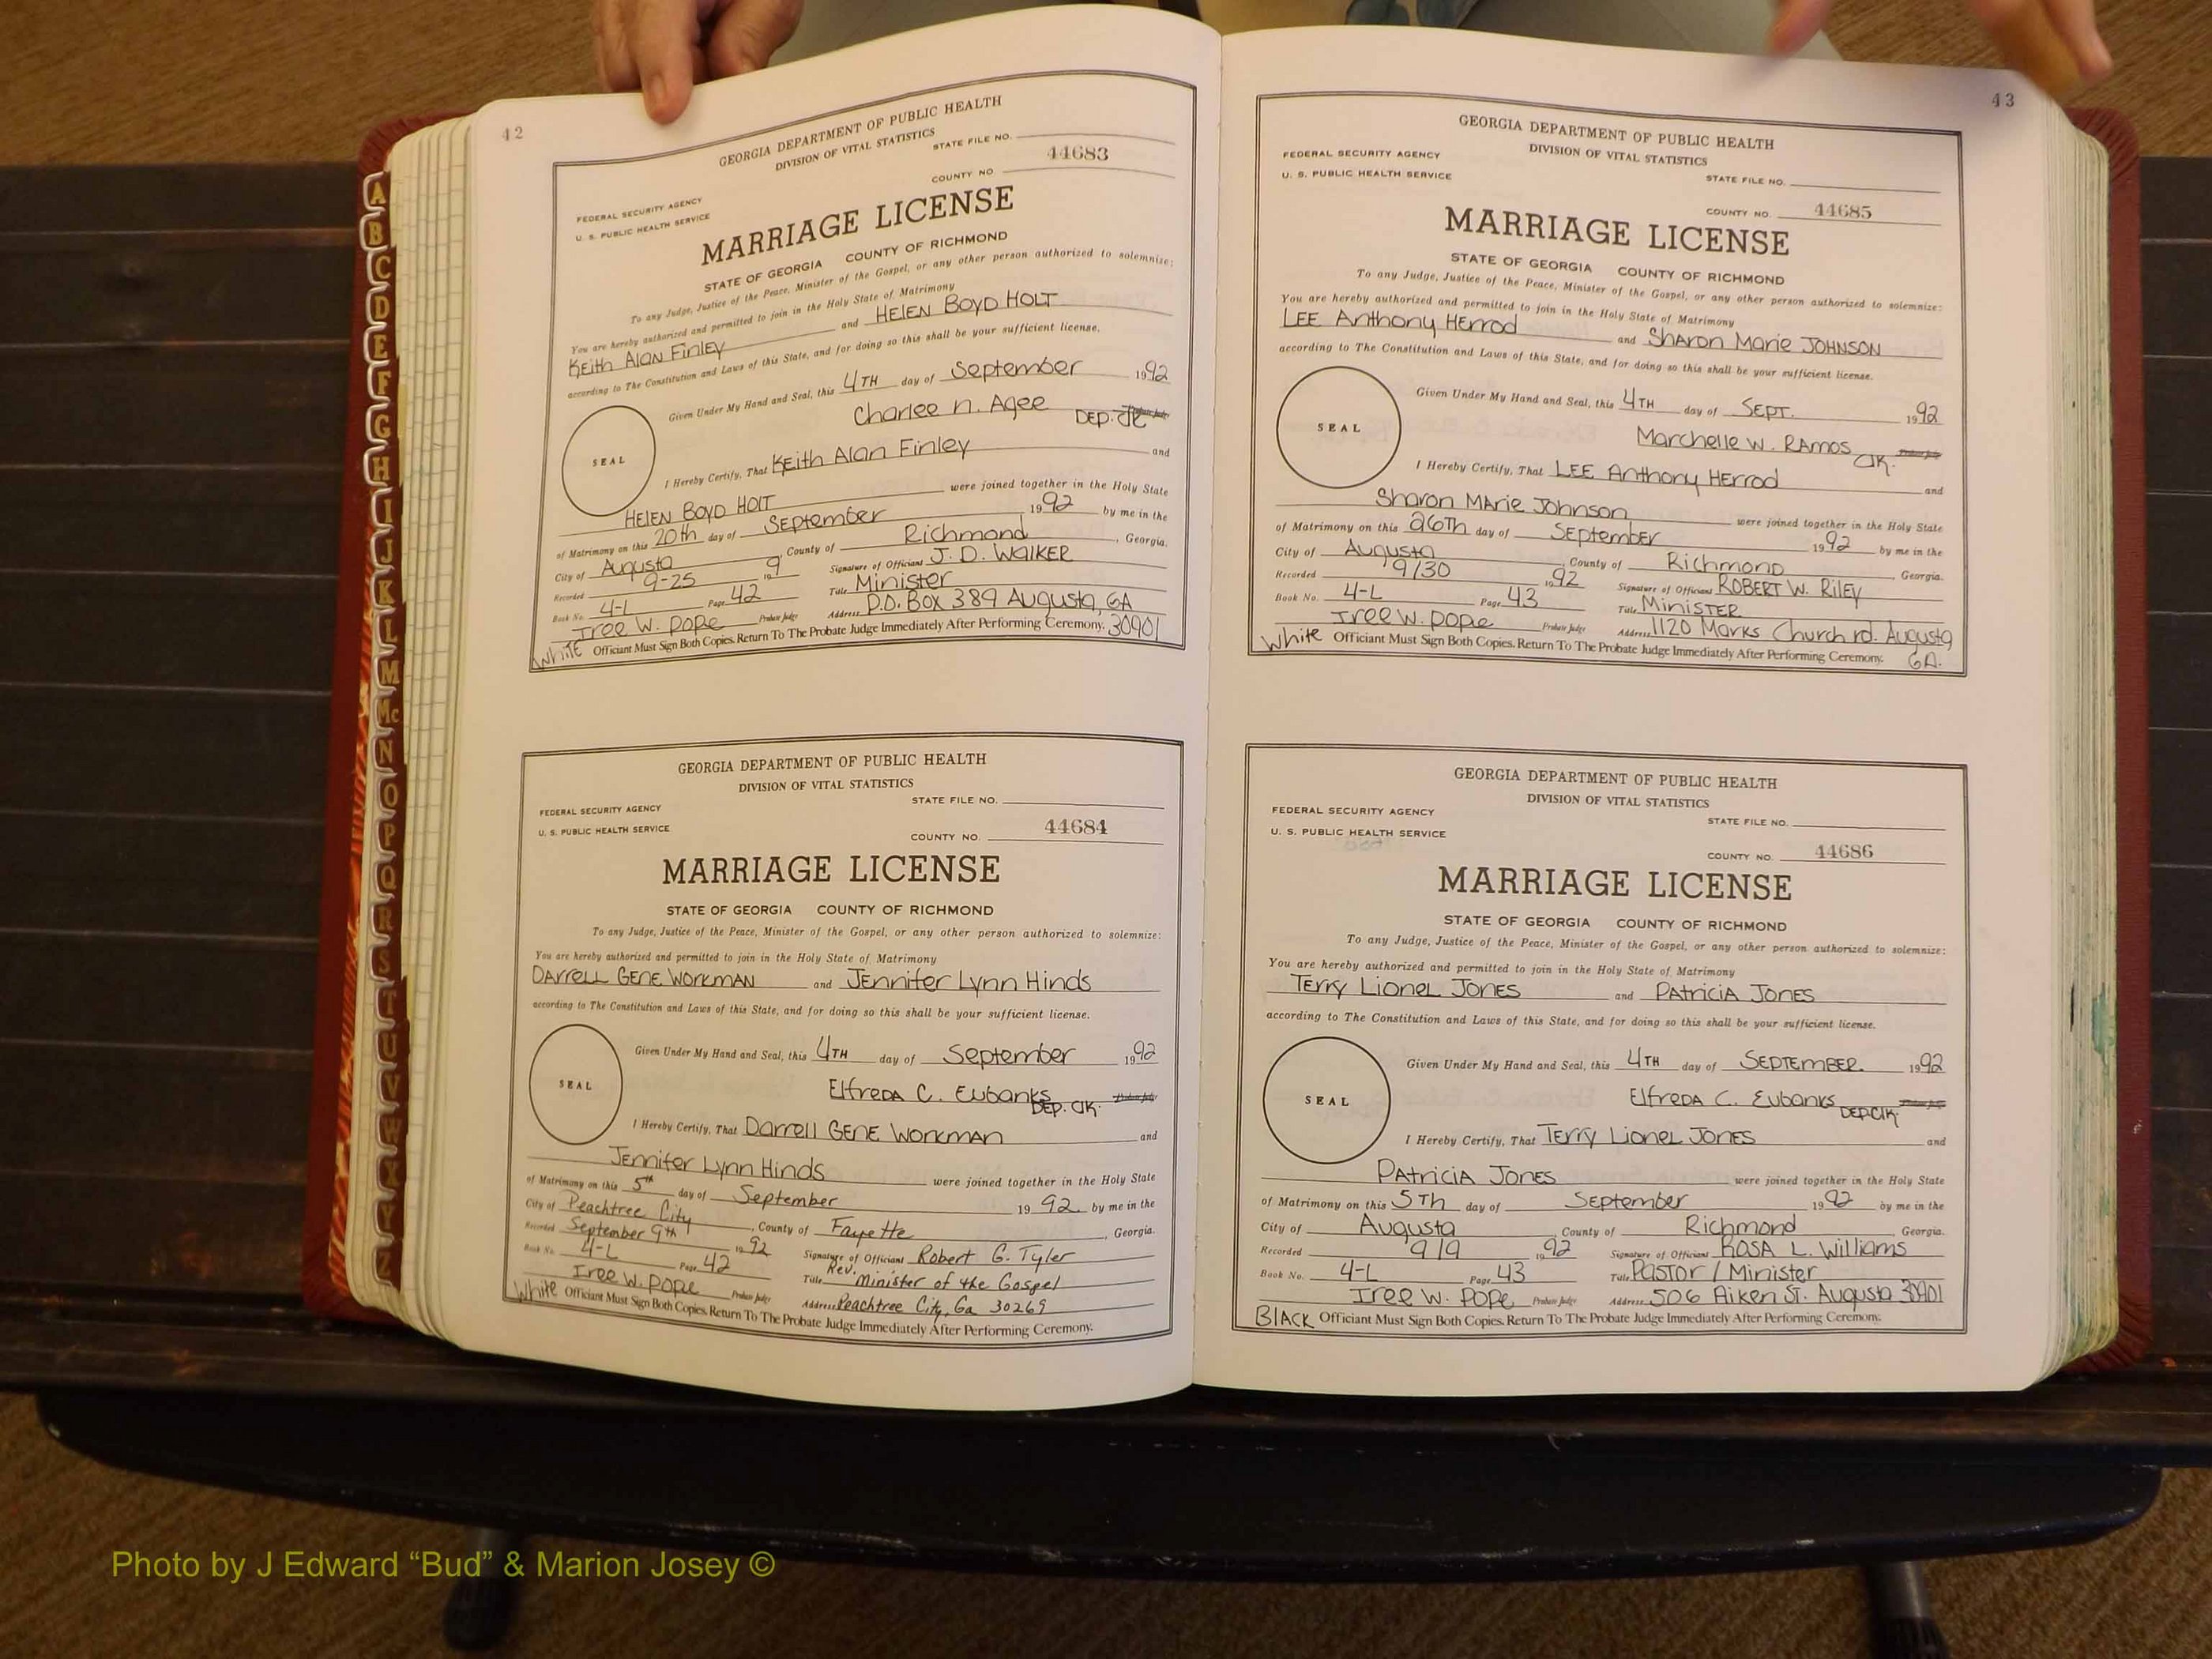 42
GEORGIA DEPARTMENT OF PUBLIC HEALTH
DIVISION OF VITAL STATISTICS
STATE FILE NO.
44683
COUNTY NO.
FEDERAL SECURITY AGENCY
U. S. PUBLIC HEALTH SERVICE
MARRIAGE LICENSE
STATE OF GEORGIA COUNTY OF RICHMOND
To any Judge, Justice of the Peace, Minister of the Gospel, or any other person authorized to solemnize:
You are hereby authorized and permitted to join in the Holy State of Matrimony
Keith Alan Finley and HELEN BOYD HOLT
according to The Constitution and Laws of this State, and for doing so this shall be your sufficient license.
Given Under My Hand and Seal, this 4TH day of September 1992
Charlee n. Agee DEP.
SEAL
I Hereby Certify, That Keith Alan Finley and
HELEN BOYD HOLT were joined together in the Holy State
of Matrimony on this 20th day of September 1992 by me in the
City of Augusta, County of Richmond, Georgia.
Recorded 9-25 199 Signature of Officiant J. D. WALKER
Book No. 4-L Page 42 Title Minister
Iree W. Pope Probate Judge Address P.O. Box 389 Augusta, GA
White Officiant Must Sign Both Copies. Return To The Probate Judge Immediately After Performing Ceremony. 30901
GEORGIA DEPARTMENT OF PUBLIC HEALTH
DIVISION OF VITAL STATISTICS
FEDERAL SECURITY AGENCY STATE FILE NO.
U. S. PUBLIC HEALTH SERVICE COUNTY NO. 44684
MARRIAGE LICENSE
STATE OF GEORGIA COUNTY OF RICHMOND
To any Judge, Justice of the Peace, Minister of the Gospel, or any other person authorized to solemnize:
You are hereby authorized and permitted to join in the Holy State of Matrimony
DARRELL GENE WORKMAN and JENNIFER Lynn Hinds
according to The Constitution and Laws of this State, and for doing so this shall be your sufficient license.
Given Under My Hand and Seal, this 4TH day of September 1992
ElfredA C. Eubanks DEP. Clk.
SEAL
I Hereby Certify, That Darrell GENE Workman and
Jennifer Lynn Hinds were joined together in the Holy State
of Matrimony on this 5th day of September 1992 by me in the
City of Peachtree City, County of Fayette, Georgia.
Recorded September 9th 1992 Signature of Officiant Robert G. Tyler
Book No. 4-L Page 42 Title Rev. Minister of the Gospel
Iree W. Pope Probate Judge Address Peachtree City, Ga 30269
White Officiant Must Sign Both Copies. Return To The Probate Judge Immediately After Performing Ceremony.
43
GEORGIA DEPARTMENT OF PUBLIC HEALTH
DIVISION OF VITAL STATISTICS
FEDERAL SECURITY AGENCY
U. S. PUBLIC HEALTH SERVICE
STATE FILE NO.
COUNTY NO. 44685
MARRIAGE LICENSE
STATE OF GEORGIA COUNTY OF RICHMOND
To any Judge, Justice of the Peace, Minister of the Gospel, or any other person authorized to solemnize:
You are hereby authorized and permitted to join in the Holy State of Matrimony
LEE Anthony Herrod and Sharon Marie JOHNSON
according to The Constitution and Laws of this State, and for doing so this shall be your sufficient license.
Given Under My Hand and Seal, this 4TH day of SEPT. 1992
Marchelle W. RAmos Clk.
SEAL
I Hereby Certify, That LEE Anthony HErrod and
Sharon MArie Johnson were joined together in the Holy State
of Matrimony on this 26Th day of SEptembEr 1992 by me in the
City of Augusta, County of Richmond, Georgia.
Recorded 9/30 1992 Signature of Officiant ROBERT W. RILEY
Book No. 4-L Page 43 Title MINISTER
Iree W. Pope Probate Judge Address 1120 Marks Church rd. Augusta
White Officiant Must Sign Both Copies. Return To The Probate Judge Immediately After Performing Ceremony. GA.
GEORGIA DEPARTMENT OF PUBLIC HEALTH
DIVISION OF VITAL STATISTICS
FEDERAL SECURITY AGENCY
U. S. PUBLIC HEALTH SERVICE
STATE FILE NO.
COUNTY NO. 44686
MARRIAGE LICENSE
STATE OF GEORGIA COUNTY OF RICHMOND
To any Judge, Justice of the Peace, Minister of the Gospel, or any other person authorized to solemnize:
You are hereby authorized and permitted to join in the Holy State of Matrimony
Terry LioneL JONES and PAtriciA JONES
according to The Constitution and Laws of this State, and for doing so this shall be your sufficient license.
Given Under My Hand and Seal, this 4TH day of SEPTEMBER 1992
ElfredA C. Eubanks DEP.Clk.
SEAL
I Hereby Certify, That TErry LioneL JONES and
PAtriciA JONES were joined together in the Holy State
of Matrimony on this 5Th day of September 1992 by me in the
City of Augusta, County of Richmond, Georgia.
Recorded 9/9 1992 Signature of Officiant ROSA L. Williams
Book No. 4-L Page 43 Title PASTOr / Minister
Iree W. Pope Probate Judge Address 506 Aiken ST. Augusta 30901
BLACK Officiant Must Sign Both Copies. Return To The Probate Judge Immediately After Performing Ceremony.
A
B
C
D
E
F
G
H
I
J
K
L
M
Mc
N
O
P
Q
R
S
T
U
V
W
X
Y
Z
Photo by J Edward “Bud” & Marion Josey ©